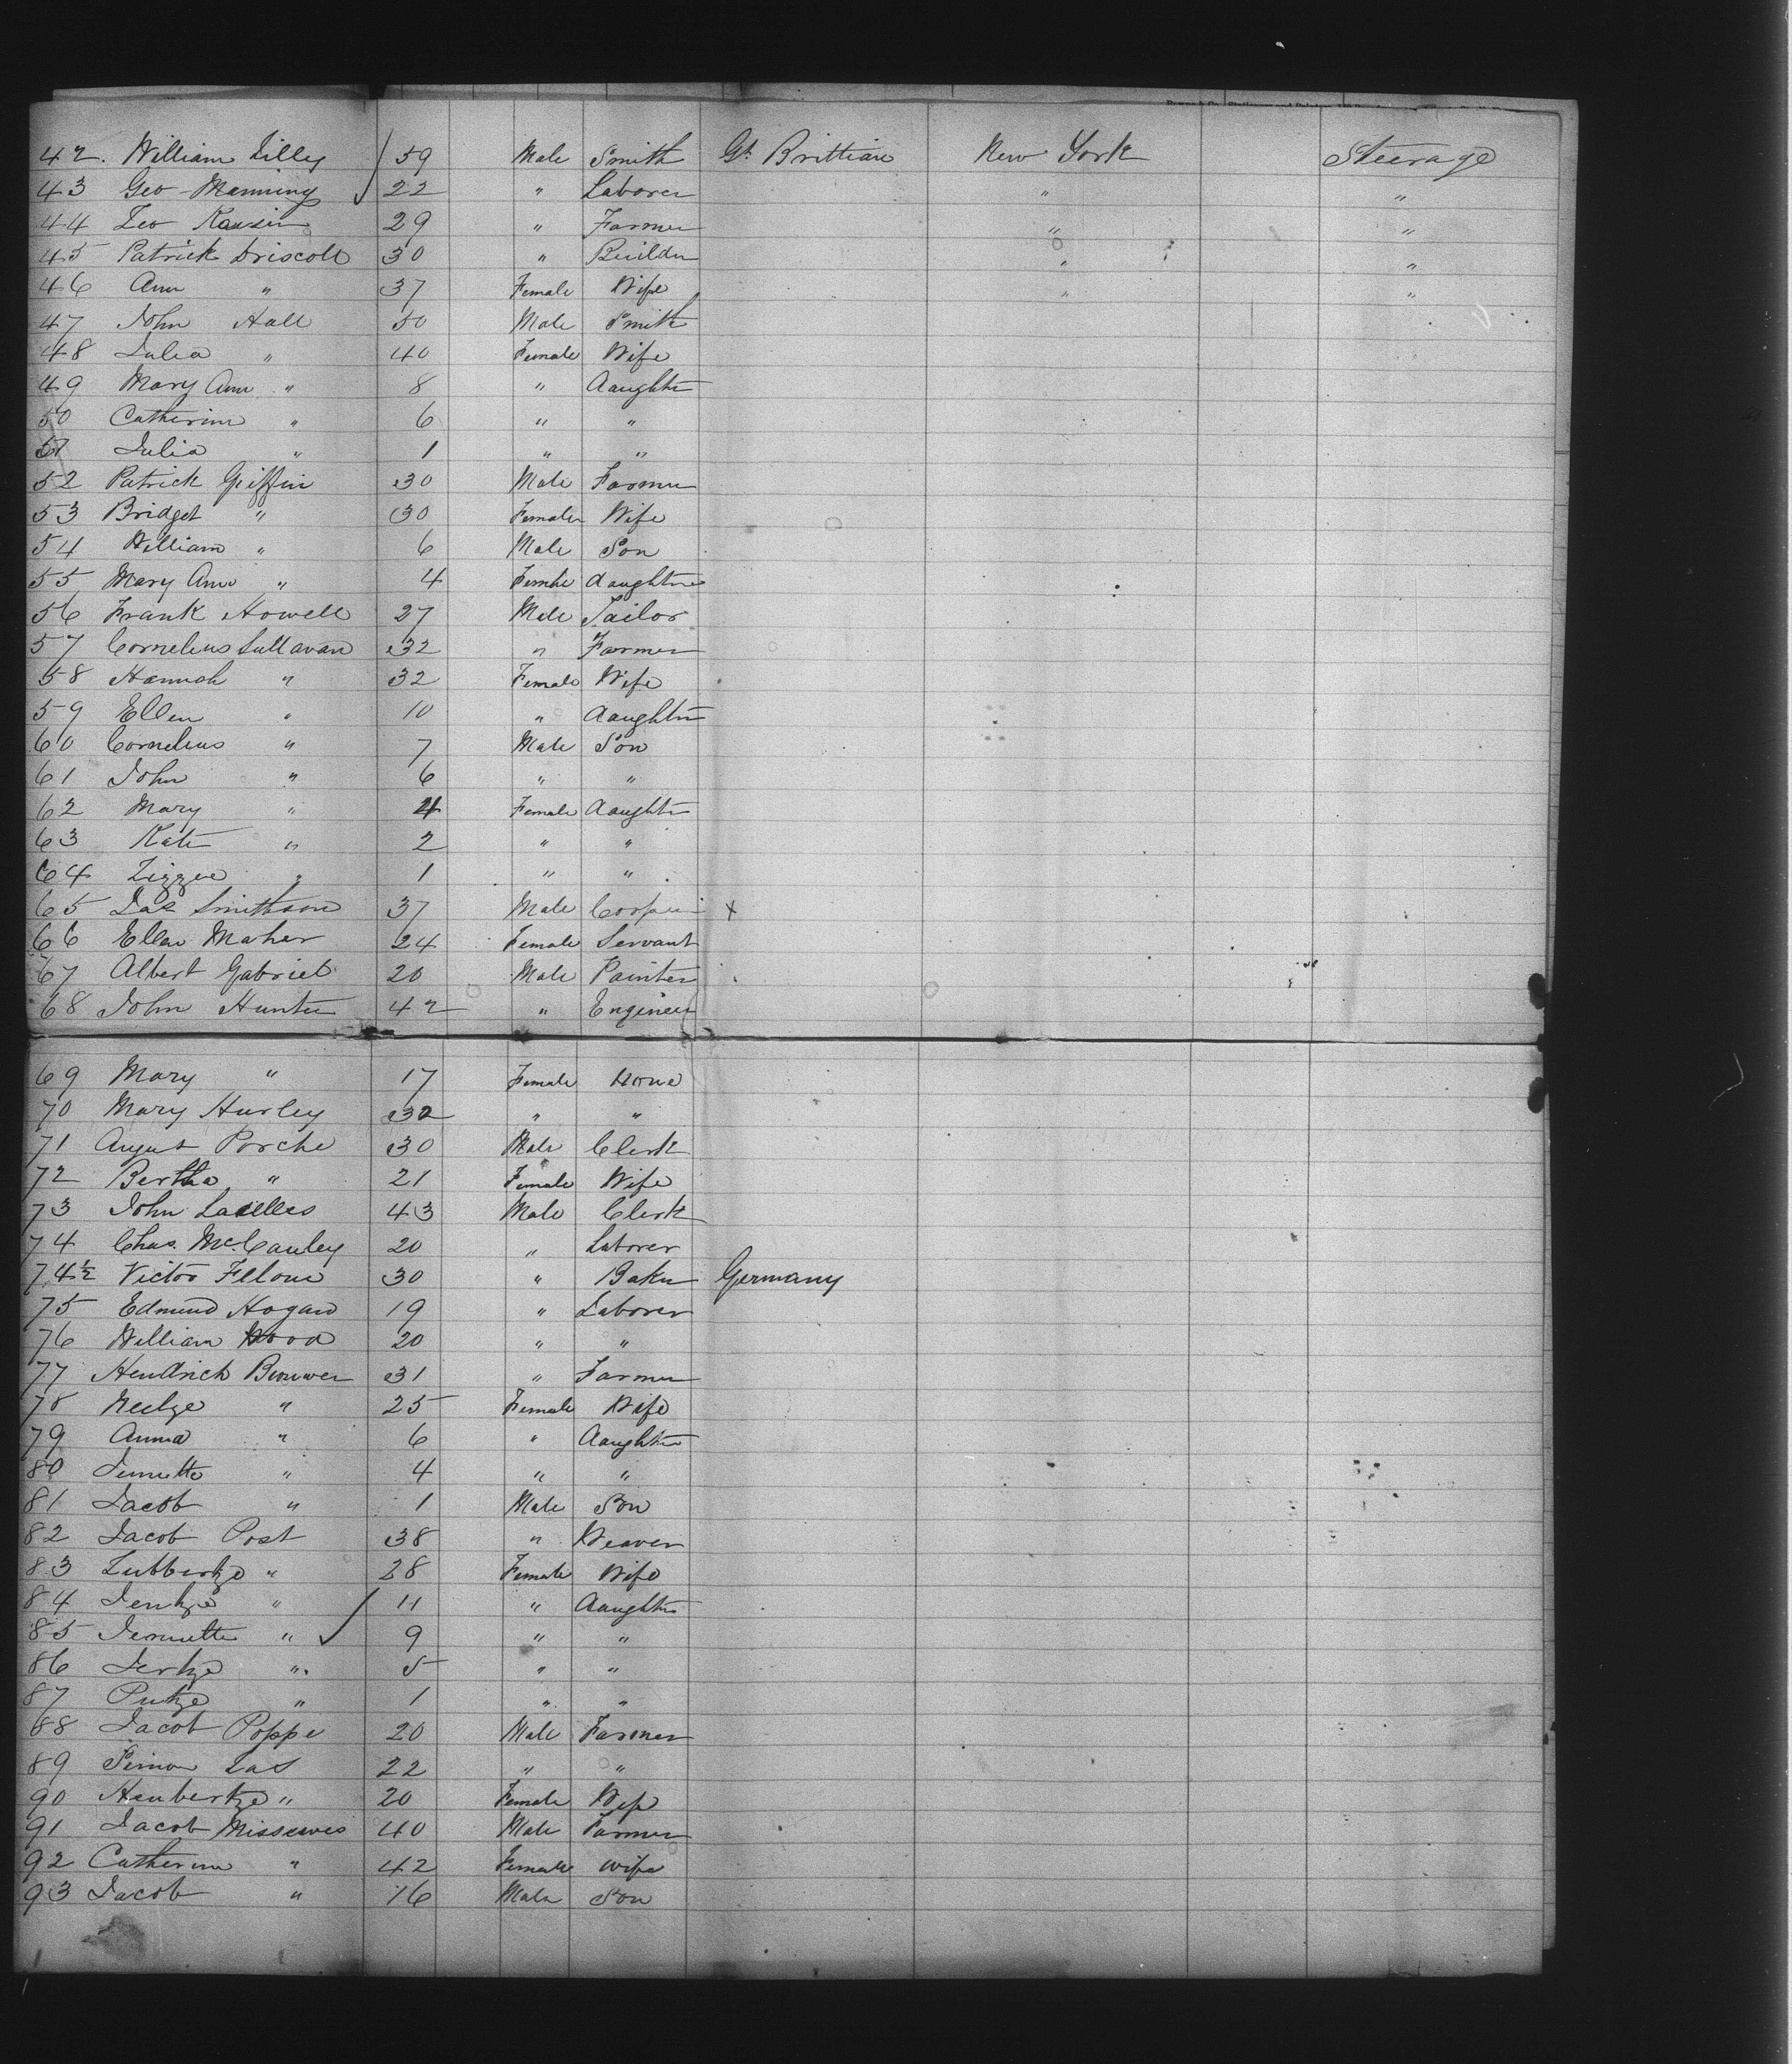 42. William Lilly 59 Male Smith Gt. Brittian New York Steerage
43 Geo Manning 22 " Laborer " "
44 Leo 29 " Farmer " "
45 Patrick Driscoll 30 " Builder " "
46 Ann " 37 Female Wife " "
47 John Hall 50 Male Smith
48 Julia " 40 Female Wife
49 Mary Ann " 8 " daughter
50 Catherine " 6 " "
51 Julia " 1 " "
52 Patrick Griffin 30 Male Farmer
53 Bridget " 30 Female Wife
54 William " 6 Male Son
55 Mary Ann " 4 Female daughter
56 Frank Howell 27 Male Tailor
57 Cornelius Sullavan 32 " Farmer
58 Hannah " 32 Female Wife
59 Ellen " 10 " daughter
60 Cornelius " 7 Male Son
61 John " 6 " "
62 Mary " 4 Female daughter
63 Kate " 2 " "
64 Lizzee " 1 " "
65 Jas Smithson 37 Male Cooper x
66 Ellen Maher 24 Female Servant
67 Albert Gabriel 20 Male Painter
68 John Hunter 42 " Engineer
69 Mary " 17 Female None
70 Mary Hurley 32 " "
71 August Porche 30 Male Clerk
72 Bertha " 21 Female Wife
73 John Lacelles 43 Male Clerk
74 Chas. McCauley 20 " Laborer
74½ Victor 30 " Baker Germany
75 Edmund Hogan 19 " Laborer
76 William Wood 20 " "
77 Hendrick Brouwer 31 " Farmer
78 Neelze " 25 Female Wife
79 Anna " 6 " daughter
80 " 4 " "
81 Jacob " 1 Male Son
82 Jacob Post 38 " Weaver
83 Lubbertze " 28 Female Wife
84 " 11 " daughter
85 Jennette " 9 " "
86 " 5 " "
87 " 1 " "
88 Jacob Poppe 20 Male Farmer
89 Simon Las 22 " "
90 Hubertze " 20 Female Wife
91 Jacob 40 Male Farmer
92 Catherine " 42 Female wife
93 Jacob " 16 Male Son